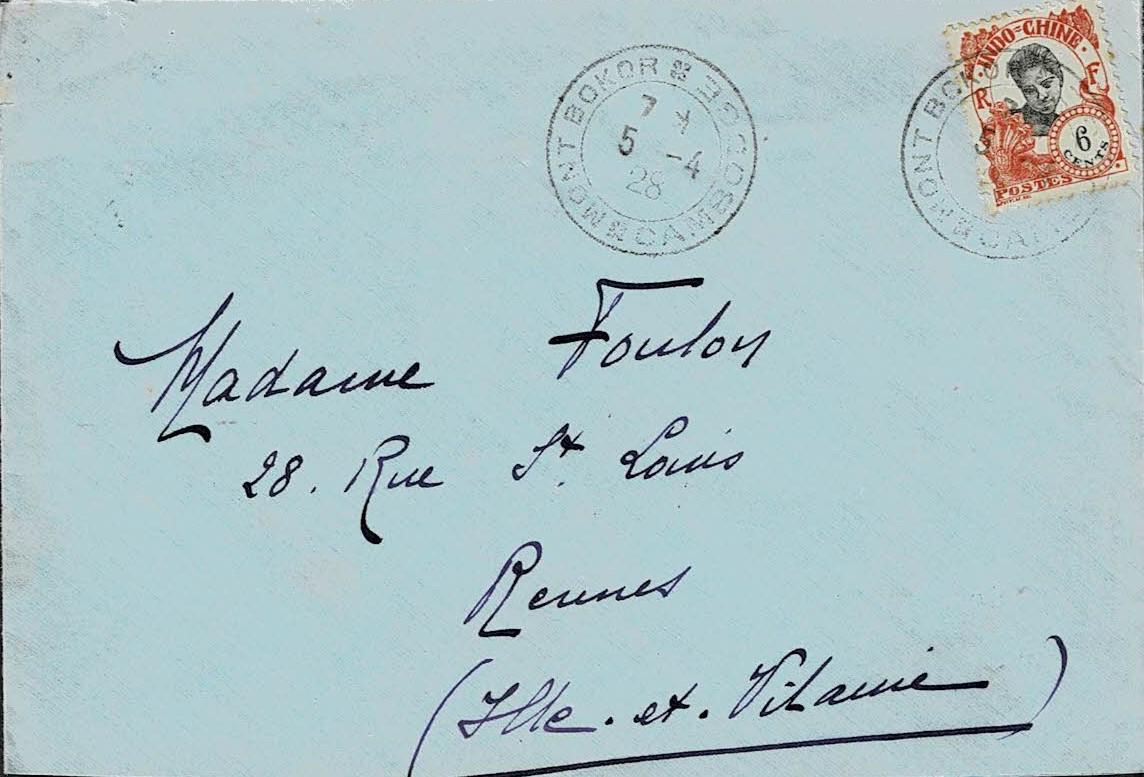 MONT BOKOR CAMBODGE
7
5 -4
28
INDO-CHINE
R F
6
CENTS
POSTES
MONT BOKOR
5
CAM
Madame Foulon
28. Rue St. Louis
Rennes
(Ille-et-Vilaine)